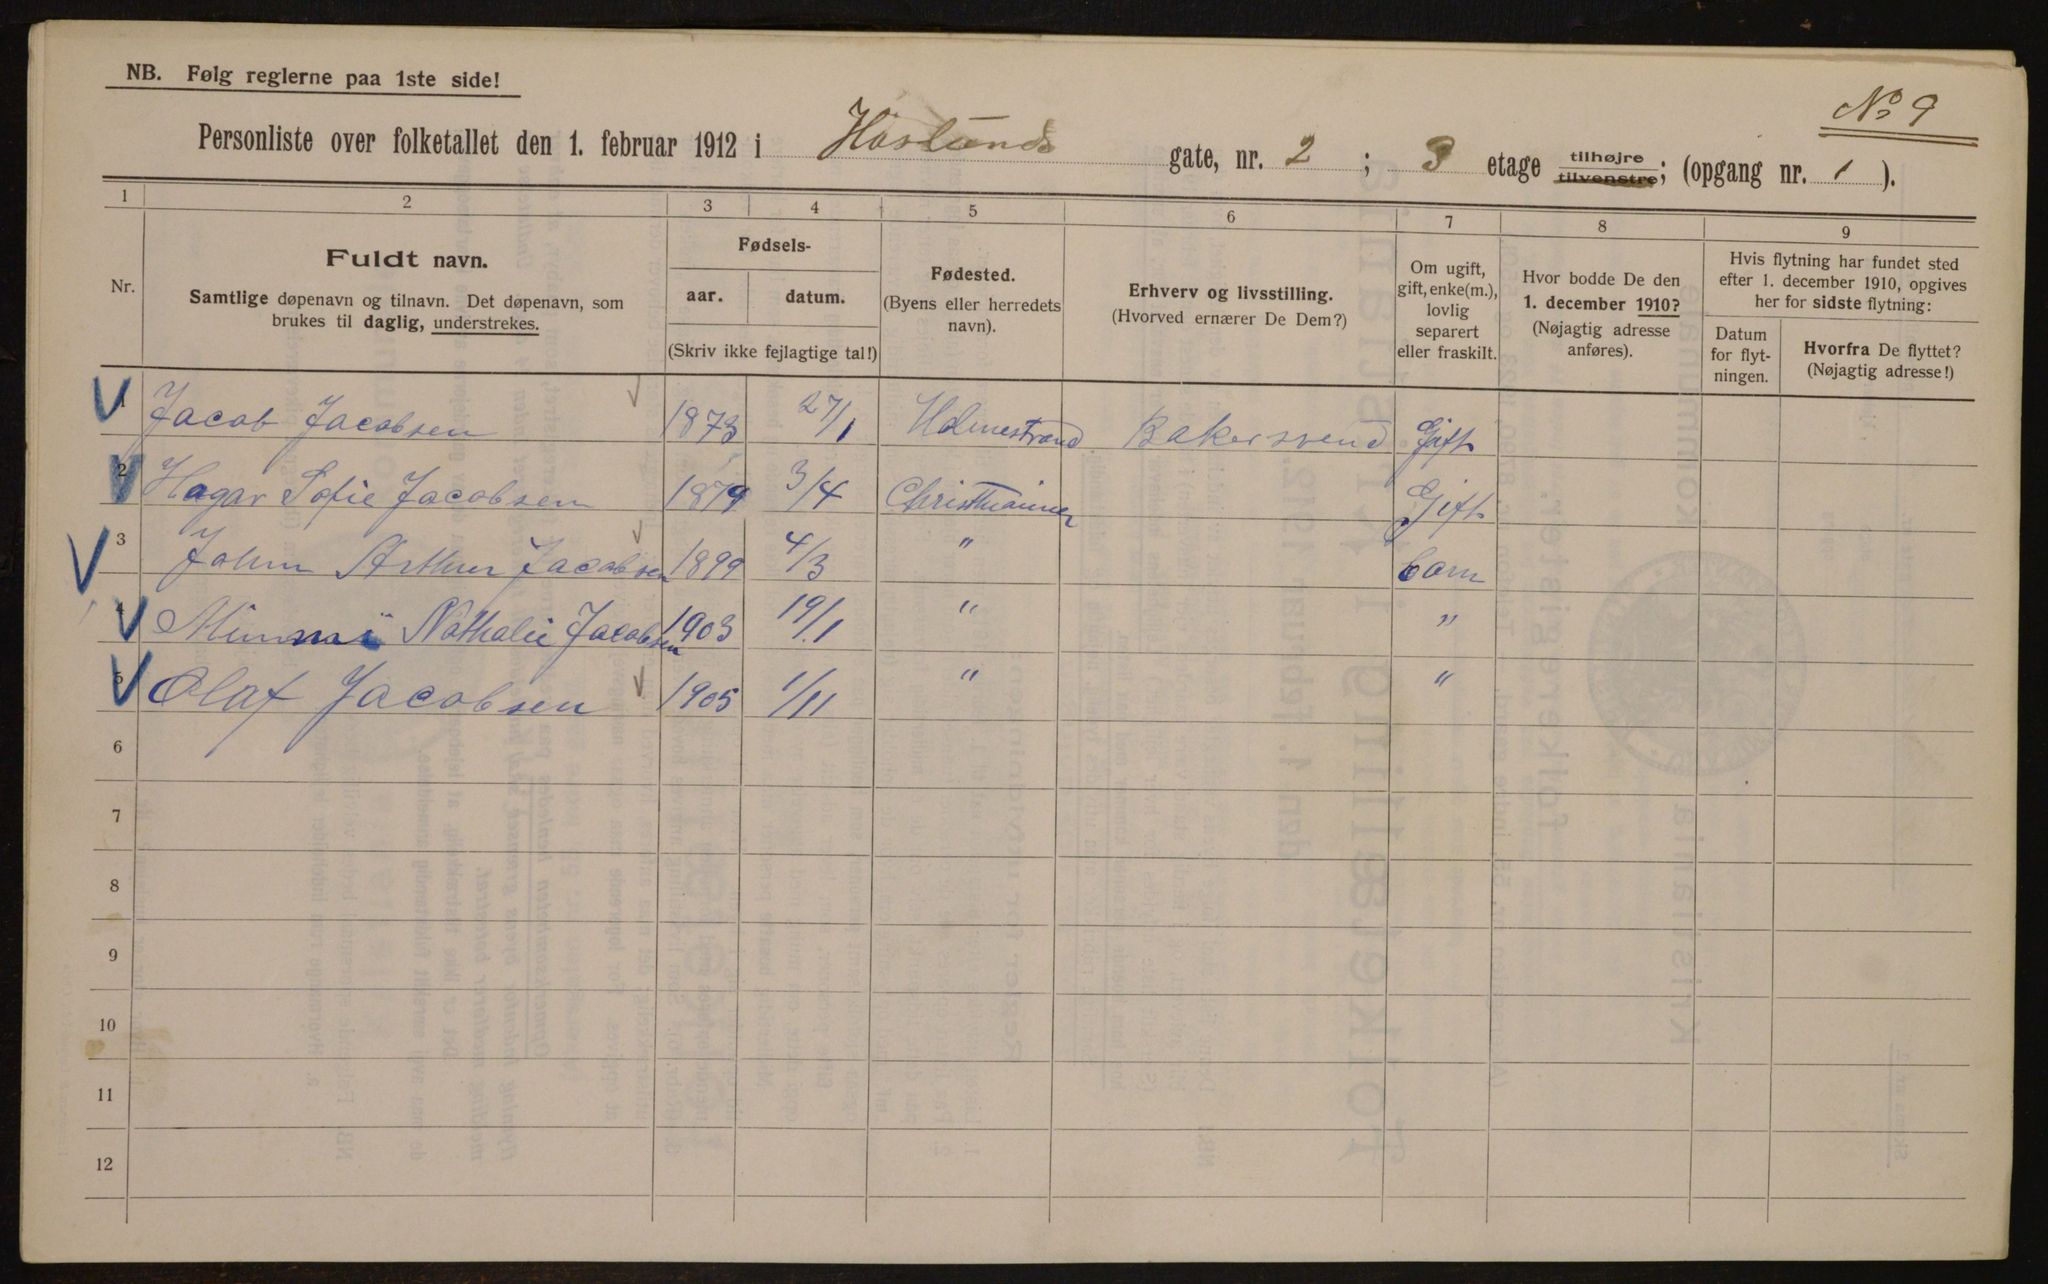 NB. Følg reglerne paa 1ste side!
No 9
Personliste over folketallet den 1. februar 1912 i Haslunds gate, nr. 2 ; 3 etage tilhøjre tilvenstre; (opgang nr. 1 ).
1 2 3 4 5 6 7 8 9
Nr.
Fuldt navn.
Samtlige døpenavn og tilnavn. Det døpenavn, som
brukes til daglig, understrekes.
Fødsels-
aar. datum.
(Skriv ikke fejlagtige tal!)
Fødested.
(Byens eller herredets
navn).
Erhverv og livsstilling.
(Hvorved ernærer De Dem?)
Om ugift,
gift, enke(m.),
lovlig
separert
eller fraskilt.
Hvor bodde De den
1. december 1910?
(Nøjagtig adresse
anføres).
Hvis flytning har fundet sted
efter 1. december 1910, opgives
her for sidste flytning:
Datum
for flyt-
ningen.
Hvorfra De flyttet?
(Nøjagtig adresse!)
1 Jacob Jacobsen 1873 27/1 Holmestrand Bakersvend Gift
2 Hagar Sofie Jacobsen 1879 3/4 Gift
3 John Arthur Jacobsen 1899 4/3 " barn
4 Mimmi Nathalie Jacobsen 1903 19/1 " "
5 Olaf Jacobsen 1905 1/11 " "
6
7
8
9
10
11
12